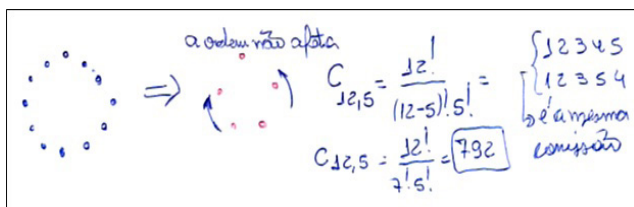 a ordem não afeta
C12,5 = 12! / (12-5)! 5! =
C12,5 = 12! / 7! 5! = 792
12345
12354
é a mesma
comissão